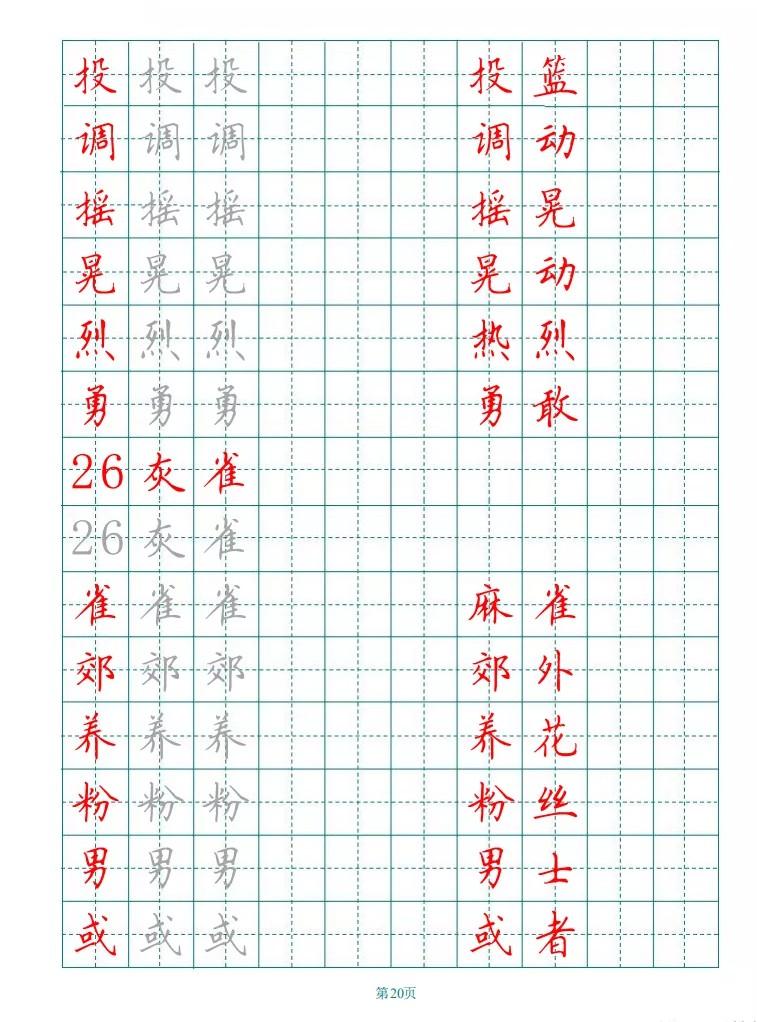 投投投 投篮
调调调 调动
摇摇摇 摇晃
晃晃晃 晃动
烈烈烈 热烈
勇勇勇 勇敢
26灰雀
26灰雀
雀雀雀 麻雀
郊郊郊 郊外
养养养 养花
粉粉粉 粉丝
男男男 男士
或或或 或者
第20页